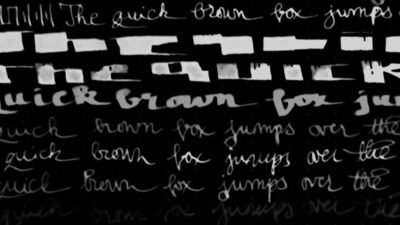 The quick brown fox jumps
the quick
quick brown fox jum
quick brown fox jumps over the
quick brown fox jumps over the
quick brown fox jumps over the
quick brown fox jumps over the